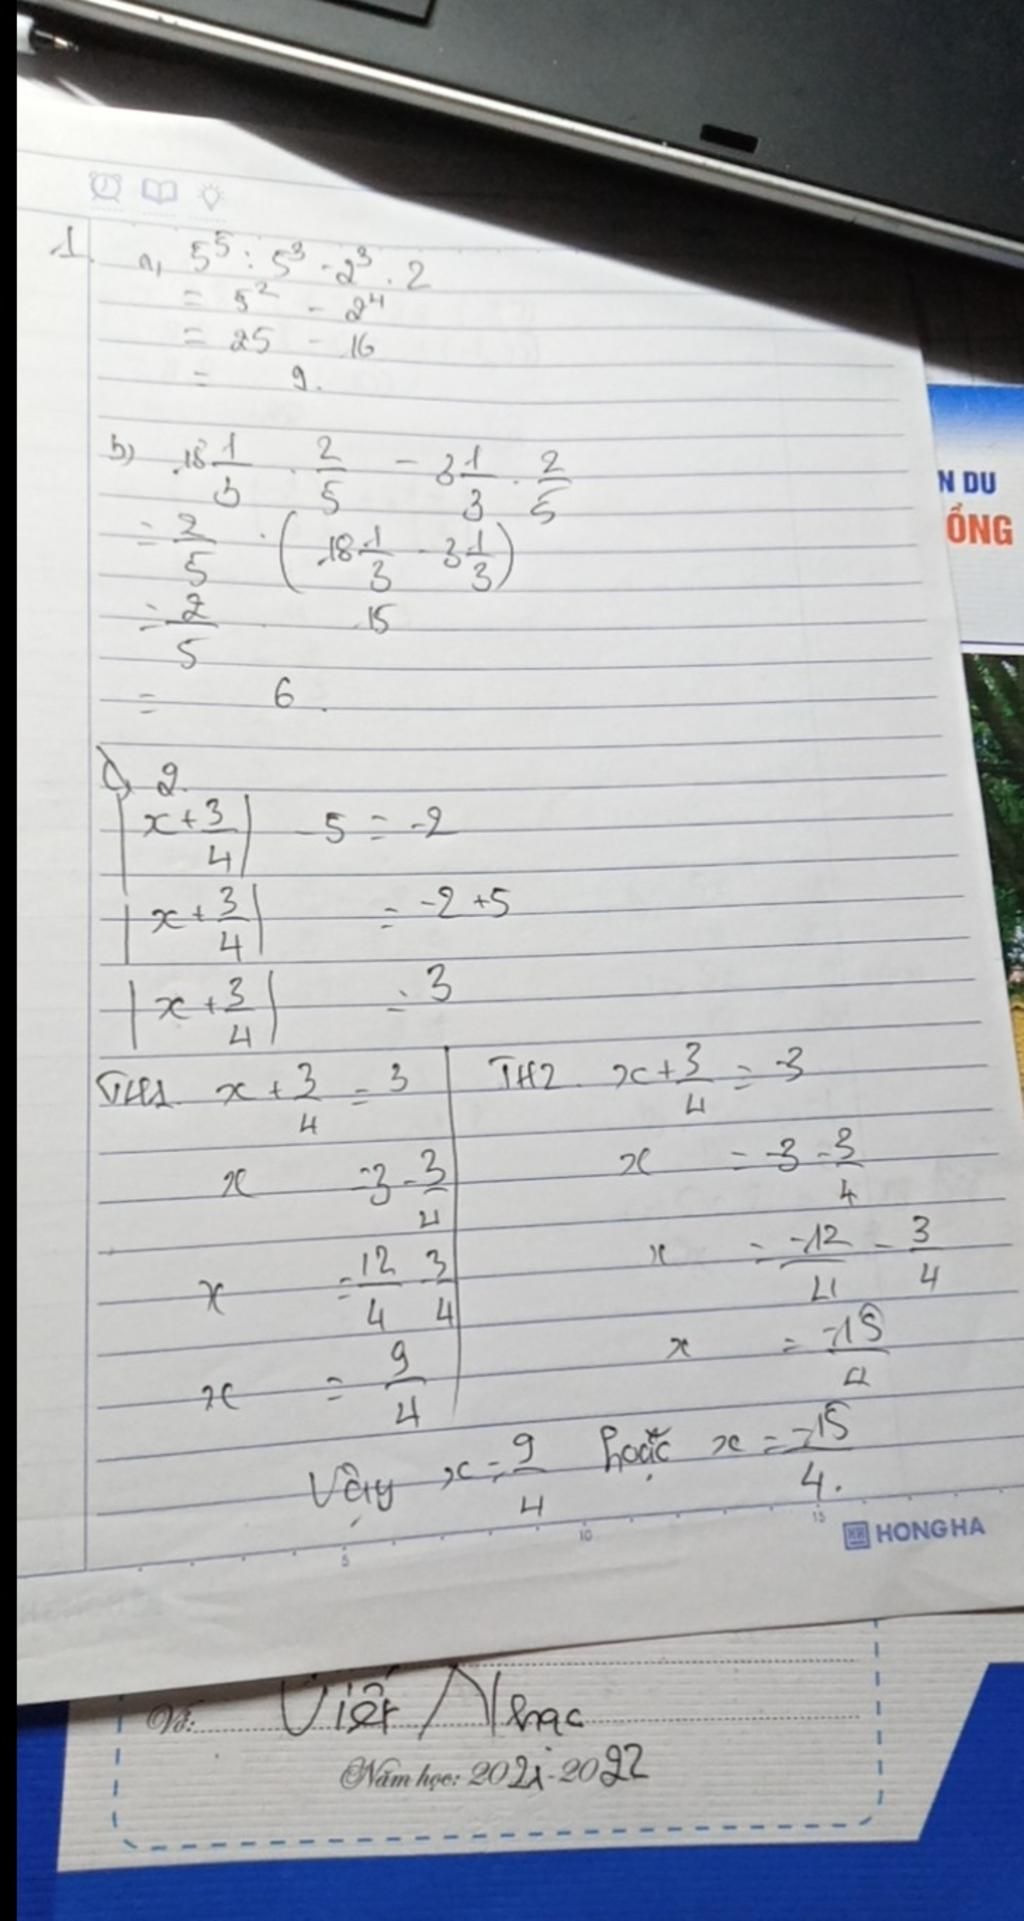 1. a, 5⁵ : 5³ - 2³ . 2
= 5² - 2⁴
= 25 - 16
= 9.
b) 18 1/3 . 2/5 - 3 1/3 . 2/5
= 2/5 . (18 1/3 - 3 1/3)
= 2/5 15
= 6.
2.
|x + 3/4| - 5 = -2
|x + 3/4| = -2 + 5
|x + 3/4| = 3
TH1. x + 3/4 = 3
x = 3 - 3/4
x = 12/4 - 3/4
x = 9/4
TH2. x + 3/4 = -3
x = -3 - 3/4
x = -12/4 - 3/4
x = -15/4
Vậy x = 9/4 hoặc x = -15/4.
5 10 15
HONG HA
N DU
ỒNG
Vở: Viết Nhạc
Năm học: 2021-2022